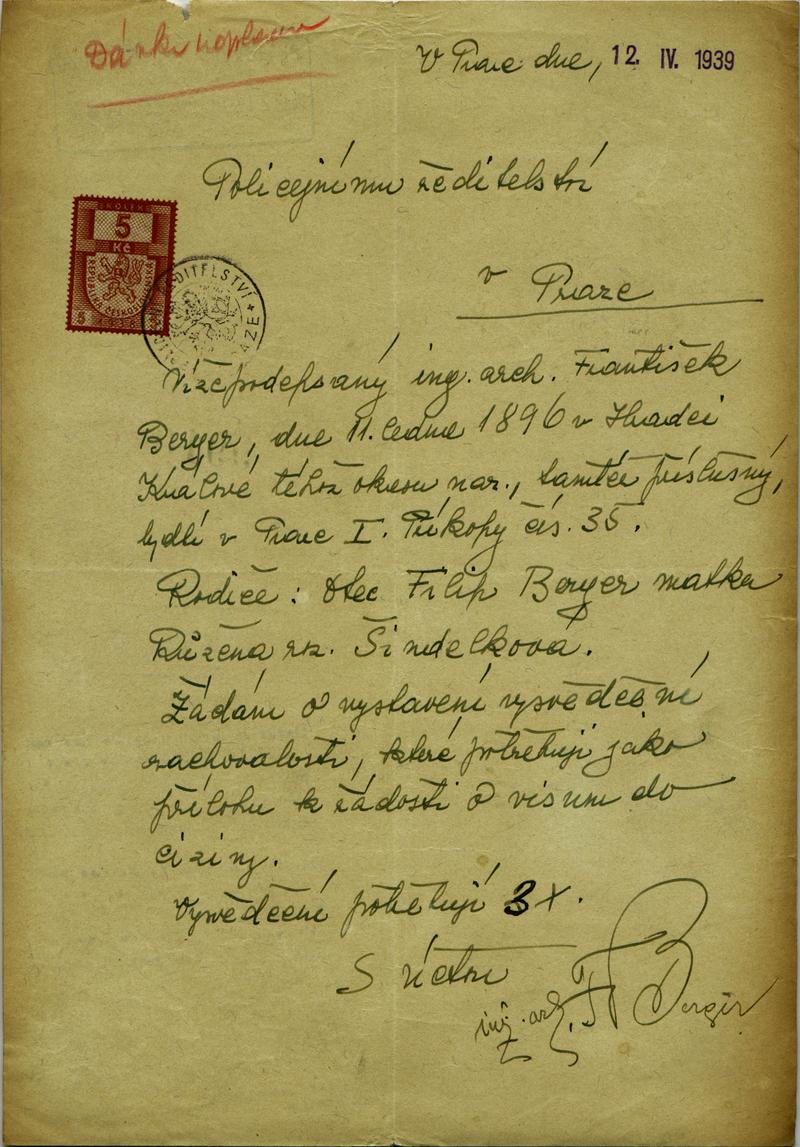 V Praze dne, 12. IV. 1939
Policejnímu ředitelství
KOLEK
5
Kč
REPUBLIKA ČESKOSLOVENSKÁ
5
v Praze
Níže podepsaný ing. arch. František
Berger, dne 11. ledna 1896 v Hradci
Králové téhož okresu nar., tamtéž příslušný,
bydlí v Praze I. Příkopy čís. 35.
Rodiče: Otec Filip Berger matka
Růžena roz. Šindelková.
Žádám o vystavení vysvědčení
zachovalosti, které potřebuji jako
přílohu k žádosti o visum do
ciziny.
Vysvědčení potřebuji 3 X.
S úctou
ing. arch. Fr Berger